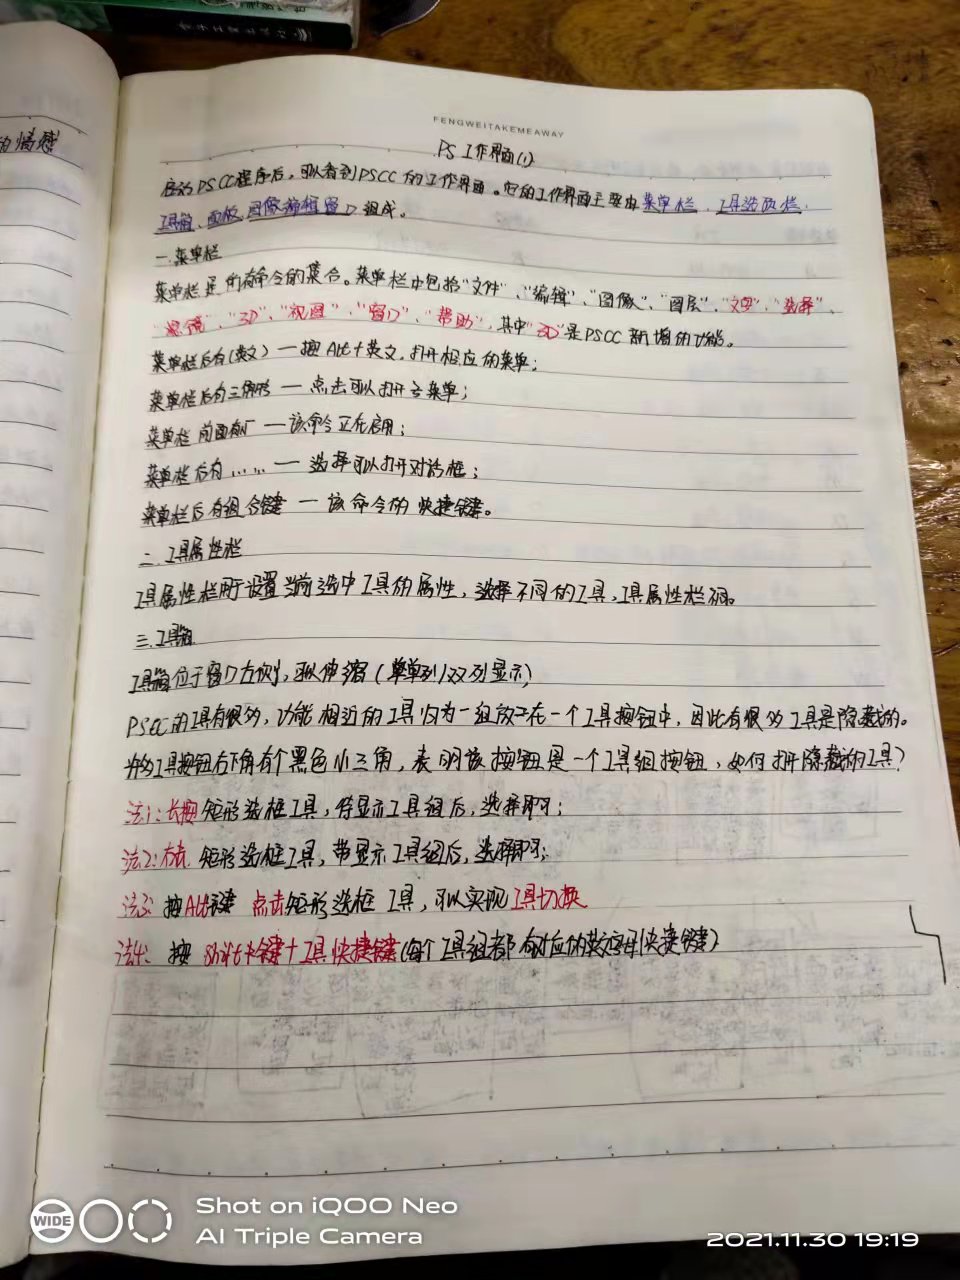 的情感
FENGWEITAKEMEAWAY
PS工作界面(1)
启动PSCC程序后,可以看到PSCC的工作界面。它的工作界面主要由菜单栏、工具选项栏、
工具箱、面板、图像编辑窗口组成。
一.菜单栏
菜单栏是所有命令的集合。菜单栏中包括“文件”、“编辑”、“图像”、“图层”、“文字”、“选择”、
“滤镜”、“3D”、“视图”、“窗口”、“帮助”,其中“3D”是PSCC新增的功能。
菜单栏后有(英文)—按Alt+英文,打开相应的菜单;
菜单栏后有三角形—点击可以打开子菜单;
菜单栏前面有厂—该命令正在启用;
菜单栏后有……—选择可以打开对话框;
菜单栏后有组合键—该命令的快捷键。
二.工具属性栏
工具属性栏用于设置当前选中工具的属性,选择不同的工具,工具属性栏不同。
三.工具箱
工具箱位于窗口左侧,可以伸缩(单单列/双列显示)
PSCC的工具有很多,功能相近的工具归为一组放在一个工具按钮中,因此有很多工具是隐藏的。
许多工具按钮右下角有个黑色小三角,表明该按钮是一个工具组按钮,如何打开隐藏的工具?
法1:长按矩形选框工具,待显示工具组后,选择即可;
法2:右击矩形选框工具,带显示工具组后,选择即可;
法3:按Alt键点击矩形选框工具,可以实现工具切换
法4:按Shift键+工具快捷键(每个工具组都有对应的英文字母快捷键)
WIDE
Shot on iQOO Neo
AI Triple Camera
2021.11.30 19:19